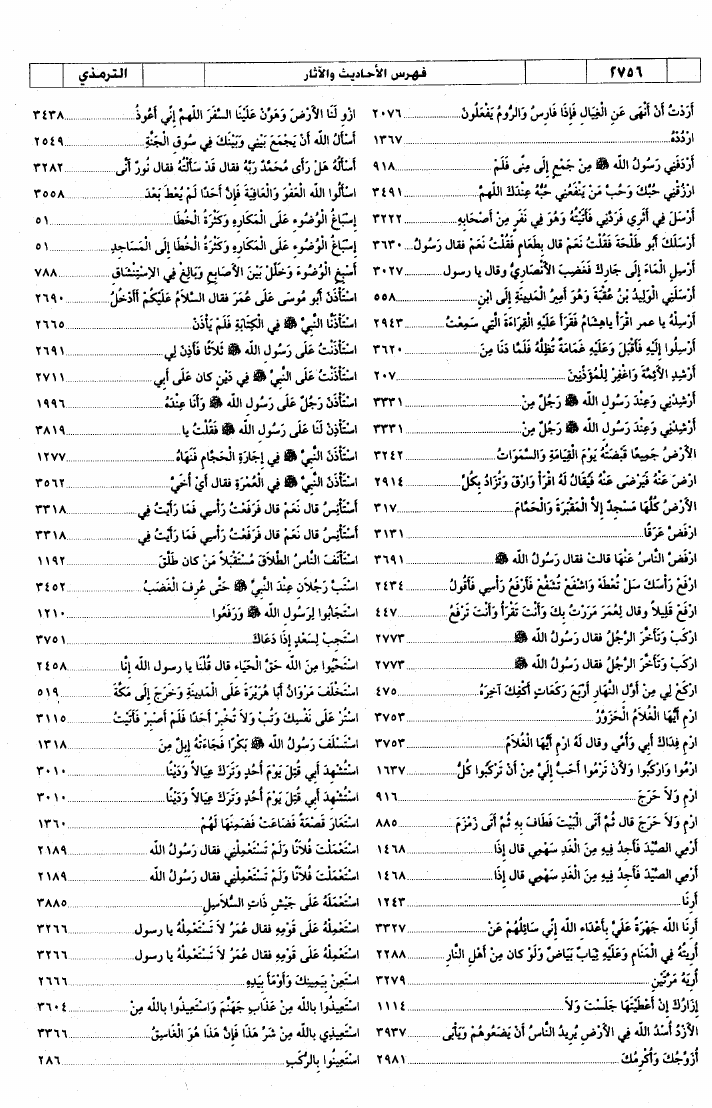 ٢٧٥٦ فهرس الأحاديث والآثار الترمذي
أَرَدْتُ أَنْ أَنْهَى عَنِ الْغِيَالِ فَإِذَا فَارِسُ وَالرُّومُ يَفْعَلُونَ ٢٠٧٦
ارْدُدْهُ ١٣٦٧
أَرْدَفَنِي رَسُولُ الله ﷺ مِنْ جَمْعٍ إِلَى مِنًى فَلَمْ ٩١٨
ارْزُقْنِي حُبَّكَ وَحُبَّ مَنْ يَنْفَعُنِي حُبُّهُ عِنْدَكَ اللهمَّ ٣٤٩١
أَرْسَلَ فِي أَثَرِي فَرَدَّنِي فَأَتَيْتُهُ وَهُوَ فِي نَفَرٍ مِنْ أَصْحَابِهِ ٣٢٢٢
أَرْسَلَكَ أَبُو طَلْحَةَ فَقُلْتُ نَعَمْ قال بِطَعَامٍ فَقُلْتُ نَعَمْ فقال رَسُولُ ٣٦٣٠
أَرْسِلِ الْمَاءَ إِلَى جَارِكَ فَغَضِبَ الأَنْصَارِيُّ وقال يا رسول ٣٠٢٧
أَرْسَلَنِي الْوَلِيدُ بْنُ عُقْبَةَ وَهُوَ أَمِيرُ الْمَدِينَةِ إِلَى ابْنِ ٥٥٨
أَرْسِلْهُ يا عمر اقْرَأْ ياهِشَامُ فَقَرَأَ عَلَيْهِ الْقِرَاءَةَ الَّتِي سَمِعْتُ ٢٩٤٣
أَرْسِلُوا إِلَيْهِ فَأَقْبَلَ وَعَلَيْهِ غَمَامَةٌ تُظِلُّهُ فَلَمَّا دَنَا مِنَ ٣٦٢٠
أَرْشِدِ الأَئِمَّةَ وَاغْفِرْ لِلْمُؤَذِّنِينَ ٢٠٧
أَرْشِدْنِي وَعِنْدَ رَسُولِ الله ﷺ رَجُلٌ مِنْ ٣٣٣١
أَرْشِدْنِي وَعِنْدَ رَسُولِ الله ﷺ رَجُلٌ مِنْ ٣٣٣١
الأَرْضُ جَمِيعًا قَبْضَتُهُ يَوْمَ الْقِيَامَةِ وَالسَّمَوَاتُ ٣٢٤٢
ارْضَ عَنْهُ فَيَرْضَى عَنْهُ فَيُقَالُ لَهُ اقْرَأْ وَارْقَ وَتُزَادُ بِكُلِّ ٢٩١٤
الأَرْضُ كُلُّهَا مَسْجِدٌ إِلاَّ الْمَقْبَرَةَ وَالْحَمَّامَ ٣١٧
ارْفَضَّ عَرَقًا ٣١٣١
ارْفَضَّ النَّاسُ عَنْهَا قالت فقال رَسُولُ الله ﷺ ٣٦٩١
ارْفَعْ رَأْسَكَ سَلْ تُعْطَهْ وَاشْفَعْ تُشَفَّعْ فَأَرْفَعُ رَأْسِي فَأَقُولُ ٢٤٣٤
ارْفَعْ قَلِيلاً وقال لِعُمَرَ مَرَرْتُ بِكَ وَأَنْتَ تَقْرَأُ وَأَنْتَ تَرْفَعُ ٤٤٧
ارْكَبْ وَتَأَخَّرَ الرَّجُلُ فقال رَسُولُ الله ﷺ ٢٧٧٣
ارْكَبْ وَتَأَخَّرَ الرَّجُلُ فقال رَسُولُ الله ﷺ ٢٧٧٣
ارْكَعْ لِي مِنْ أَوَّلِ النَّهَارِ أَرْبَعَ رَكَعَاتٍ أَكْفِكَ آخِرَهُ ٤٧٥
ارْمِ أَيُّهَا الْغُلاَمُ الْحَزَوَّرُ ٣٧٥٣
ارْمِ فِدَاكَ أَبِي وَأُمِّي وقال لَهُ ارْمِ أَيُّهَا الْغُلاَمُ ٣٧٥٣
ارْمُوا وَارْكَبُوا وَلأَنْ تَرْمُوا أَحَبُّ إِلَيَّ مِنْ أَنْ تَرْكَبُوا كُلُّ ١٦٣٧
ارْمِ وَلاَ حَرَجَ ٩١٦
ارْمِ وَلاَ حَرَجَ قال ثُمَّ أَتَى الْبَيْتَ فَطَافَ بِهِ ثُمَّ أَتَى زَمْزَمَ ٨٨٥
أَرْمِي الصَّيْدَ فَأَجِدُ فِيهِ مِنَ الْغَدِ سَهْمِي قال إِذَا ١٤٦٨
أَرْمِي الصَّيْدَ فَأَجِدُ فِيهِ مِنَ الْغَدِ سَهْمِي قال إِذَا ١٤٦٨
أَرِنَا ١٢٤٣
أَرِنَا الله جَهْرَةً عَلَيَّ بِأَعْدَاءِ الله إِنِّي سَائِلُهُمْ عَنْ ٣٣٢٧
أُرِيتُهُ فِي الْمَنَامِ وَعَلَيْهِ ثِيَابٌ بَيَاضٌ وَلَوْ كان مِنْ أَهْلِ النَّارِ ٢٢٨٨
أُرِيَهُ مَرَّتَيْنِ ٣٢٧٩
إِزَارُكَ إِنْ أَعْطَيْتَهَا جَلَسْتَ وَلاَ ١١١٤
الأَزْدُ أُسْدُ الله فِي الأَرْضِ يُرِيدُ النَّاسُ أَنْ يَضَعُوهُمْ وَيَأْبَى ٣٩٣٧
أُزَوِّجُكَ وَأُكْرِمُكَ ٢٩٨١
ازْوِ لَنَا الأَرْضَ وَهَوِّنْ عَلَيْنَا السَّفَرَ اللهمَّ إِنِّي أَعُوذُ ٣٤٣٨
أَسْأَلُ الله أَنْ يَجْمَعَ بَيْنِي وَبَيْنَكَ فِي سُوقِ الْجَنَّةِ ٢٥٤٩
أَسْأَلُهُ هَلْ رَأَى مُحَمَّدٌ رَبَّهُ فقال قَدْ سَأَلْتُهُ فقال نُورٌ أَنَّى ٣٢٨٢
اسْأَلُوا الله الْعَفْوَ وَالْعَافِيَةَ فَإِنَّ أَحَدًا لَمْ يُعْطَ بَعْدَ ٣٥٥٨
إِسْبَاغُ الْوُضُوءِ عَلَى الْمَكَارِهِ وَكَثْرَةُ الْخُطَا ٥١
إِسْبَاغُ الْوُضُوءِ عَلَى الْمَكَارِهِ وَكَثْرَةُ الْخُطَا إِلَى الْمَسَاجِدِ ٥١
أَسْبِغِ الْوُضُوءَ وَخَلِّلْ بَيْنَ الأَصَابِعِ وَبَالِغْ فِي الاِسْتِنْشَاقِ ٧٨٨
اسْتَأْذَنَ أَبُو مُوسَى عَلَى عُمَرَ فقال السَّلاَمُ عَلَيْكُمْ أَأَدْخُلُ ٢٦٩٠
اسْتَأْذَنَّا النَّبِيَّ ﷺ فِي الْكِتَابَةِ فَلَمْ يَأْذَنْ ٢٦٦٥
اسْتَأْذَنْتُ عَلَى رَسُولِ الله ﷺ ثَلاَثًا فَأَذِنَ لِي ٢٦٩١
اسْتَأْذَنْتُ عَلَى النَّبِيِّ ﷺ فِي دَيْنٍ كان عَلَى أَبِي ٢٧١١
اسْتَأْذَنَ رَجُلٌ عَلَى رَسُولِ الله ﷺ وَأَنَا عِنْدَهُ ١٩٩٦
اسْتَأْذِنْ لَنَا عَلَى رَسُولِ الله ﷺ فَقُلْتُ يا ٣٨١٩
اسْتَأْذَنَ النَّبِيَّ ﷺ فِي إِجَارَةِ الْحَجَّامِ فَنَهَاهُ ١٢٧٧
اسْتَأْذَنَ النَّبِيَّ ﷺ فِي الْعُمْرَةِ فقال أَيْ أُخَيَّ ٣٥٦٢
أَسْتَأْنِسُ قال نَعَمْ قال فَرَفَعْتُ رَأْسِي فَمَا رَأَيْتُ فِي ٣٣١٨
أَسْتَأْنِسُ قال نَعَمْ قال فَرَفَعْتُ رَأْسِي فَمَا رَأَيْتُ فِي ٣٣١٨
اسْتَأْنَفَ النَّاسُ الطَّلاَقَ مُسْتَقْبَلاً مَنْ كان طَلَّقَ ١١٩٢
اسْتَبَّ رَجُلاَنِ عِنْدَ النَّبِيِّ ﷺ حَتَّى عُرِفَ الْغَضَبُ ٣٤٥٢
اسْتَجَابُوا لِرَسُولِ الله ﷺ وَرَفَعُوا ١٢١٠
اسْتَجِبْ لِسَعْدٍ إِذَا دَعَاكَ ٣٧٥١
اسْتَحْيُوا مِنَ الله حَقَّ الْحَيَاءِ قال قُلْنَا يا رسول الله إِنَّا ٢٤٥٨
اسْتَخْلَفَ مَرْوَانُ أَبَا هُرَيْرَةَ عَلَى الْمَدِينَةِ وَخَرَجَ إِلَى مَكَّةَ ٥١٩
اسْتُرْ عَلَى نَفْسِكَ وَتُبْ وَلاَ تُخْبِرْ أَحَدًا فَلَمْ أَصْبِرْ فَأَتَيْتُ ٣١١٥
اسْتَسْلَفَ رَسُولُ الله ﷺ بَكْرًا فَجَاءَتْهُ إِبِلٌ مِنَ ١٣١٨
اسْتُشْهِدَ أَبِي قُتِلَ يَوْمَ أُحُدٍ وَتَرَكَ عِيَالاً وَدَيْنًا ٣٠١٠
اسْتُشْهِدَ أَبِي قُتِلَ يَوْمَ أُحُدٍ وَتَرَكَ عِيَالاً وَدَيْنًا ٣٠١٠
اسْتَعَارَ قَصْعَةً فَضَاعَتْ فَضَمِنَهَا لَهُمْ ١٣٦٠
اسْتَعْمَلْتَ فُلاَنًا وَلَمْ تَسْتَعْمِلْنِي فقال رَسُولُ الله ٢١٨٩
اسْتَعْمَلْتَ فُلاَنًا وَلَمْ تَسْتَعْمِلْنِي فقال رَسُولُ الله ٢١٨٩
اسْتَعْمَلَهُ عَلَى جَيْشِ ذَاتِ السُّلاَسِلِ ٣٨٨٥
اسْتَعْمِلْهُ عَلَى قَوْمِهِ فقال عُمَرُ لاَ تَسْتَعْمِلْهُ يا رسول ٣٢٦٦
اسْتَعْمِلْهُ عَلَى قَوْمِهِ فقال عُمَرُ لاَ تَسْتَعْمِلْهُ يا رسول ٣٢٦٦
اسْتَعِنْ بِيَمِينِكَ وَأَوْمَأَ بِيَدِهِ ٢٦٦٦
اسْتَعِيذُوا بِالله مِنْ عَذَابِ جَهَنَّمَ وَاسْتَعِيذُوا بِالله مِنْ ٣٦٠٤
اسْتَعِيذِي بِالله مِنْ شَرِّ هَذَا فَإِنَّ هَذَا هُوَ الْغَاسِقُ ٣٣٦٦
اسْتَعِينُوا بِالرُّكَبِ ٢٨٦